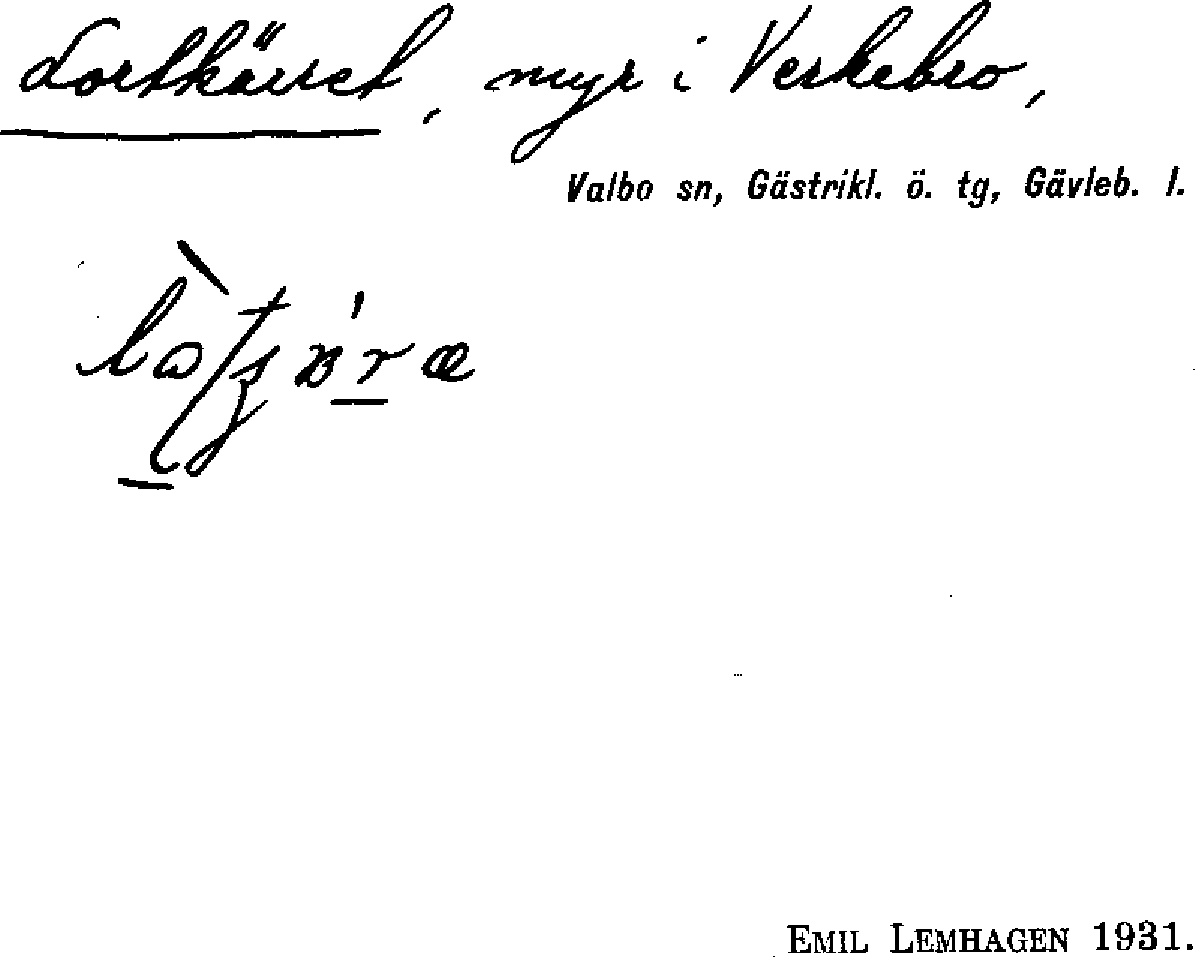 Lortkärret, myr i Verkebro,
Valbo sn, Gästrikl. ö. tg, Gävleb. l.
EMIL LEMHAGEN 1931.